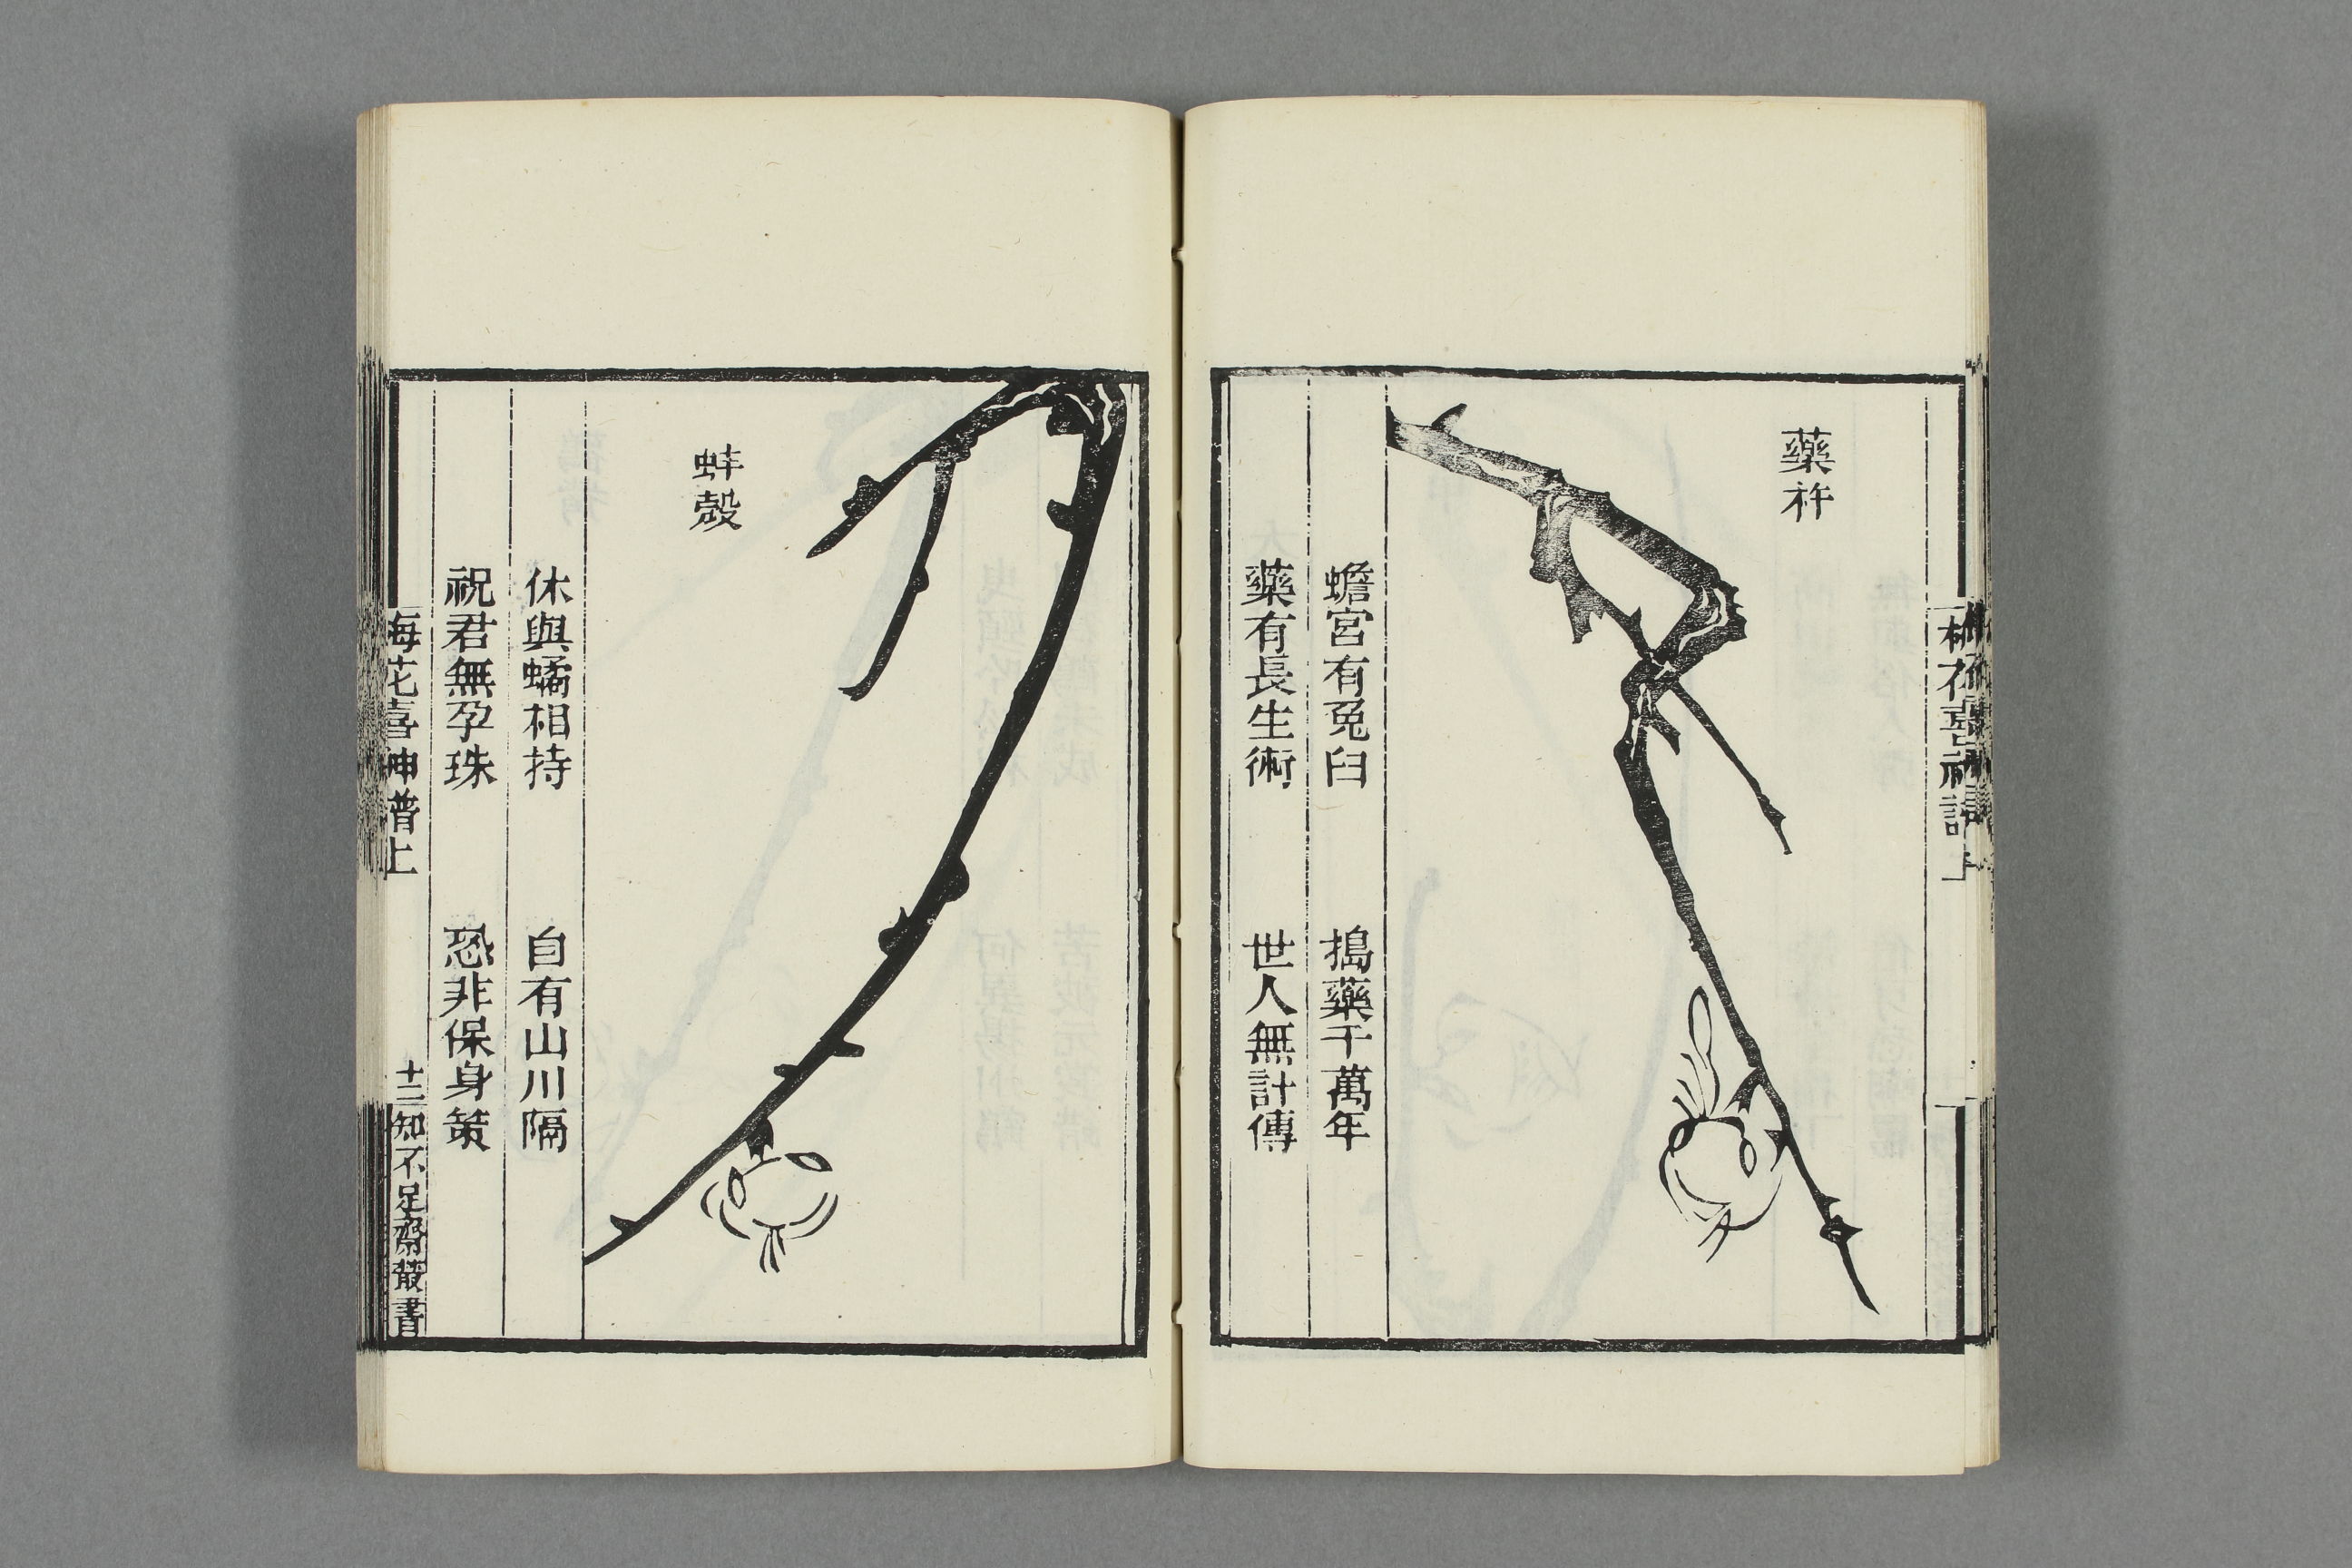 藥杵
蟾宮有兔臼 搗藥千萬年
藥有長生術 世人無計傳
蚌殼
休與蠘相持 自有山川隔
祝君無孕珠 恐非保身策
梅花喜神譜上
十二
知不足齋叢書